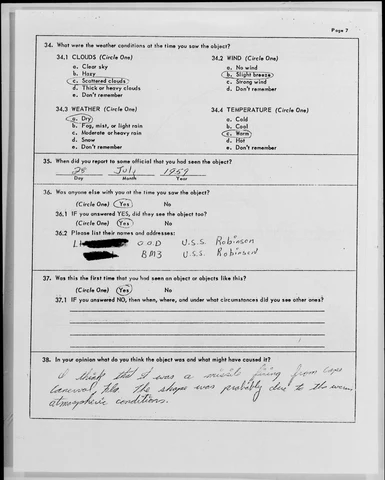 Page 7
34. What were the weather conditions at the time you saw the object?
34.1 CLOUDS (Circle One)
a. Clear sky
b. Hazy
c. Scattered clouds
d. Thick or heavy clouds
e. Don't remember
34.2 WIND (Circle One)
a. No wind
b. Slight breeze
c. Strong wind
d. Don't remember
34.3 WEATHER (Circle One)
a. Dry
b. Fog, mist, or light rain
c. Moderate or heavy rain
d. Snow
e. Don't remember
34.4 TEMPERATURE (Circle One)
a. Cold
b. Cool
c. Warm
d. Hot
e. Don't remember
35. When did you report to some official that you had seen the object?
July 1959
Day Month Year
36. Was anyone else with you at the time you saw the object?
(Circle One) Yes No
36.1 IF you answered YES, did they see the object too?
(Circle One) Yes No
36.2 Please list their names and addresses:
O.O.D U.S.S. Robinson
BM3 U.S.S. Robinson
37. Was this the first time that you had seen an object or objects like this?
(Circle One) Yes No
37.1 IF you answered NO, then when, where, and under what circumstances did you see other ones?
38. In your opinion what do you think the object was and what might have caused it?
I think that it was a missile firing from Cape
Canaveral, Fla. the shape was probably due to the
atmospheric conditions.